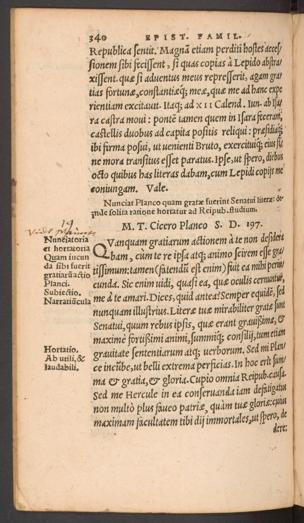 340 EPIST. FAMIL.
Republica ſentit. Magnã etiam perditi hoſtes acceſ-
ſionem ſibi feciſſent, ſi quas copias à Lepido abſtra-
xiſſent. quæ ſi aduentus meus repreſſerit, agam gra-
tias fortunæ, conſtantiæq́; meæ, quæ me ad hanc expe
rientiam excitauit. Itaq; ad XII Calend. Iun. ab Iſa
ra caſtra moui: pontē tamen quem in Iſara feceram,
caſtellis duobus ad capita poſitis reliqui: præſidiaq́;
ibi firma poſui, ut uenienti Bruto, exercituiq́; eius ſi
ne mora tranſitus eſſet paratus. Ipſe, ut ſpero, diebus
octo quibus has literas dabam, cum Lepidi copijs me
coniungam. Vale.
Nunciat Planco quam gratæ fuerint Senatui literæ: de-
inde ſolita ratione hortatur ad Reipub. ſtudium.
M. T. Cicero Planco S. D. 197.
Nunciatoria
et hortatoria
Quam iucun
da ſibi fuerit
gratiarū actio
Planci.
Subiectio.
Narratiūcula
QVanquam gratiarum actionem à te non deſidera
bam, cum te re ipſa atq; animo ſcirem eſſe gra-
tiſſimum: tamen (fatendū eſt enim) fuit ea mihi periu
cunda. Sic enim uidi, quaſi ea, quæ oculis cernuntur,
me à te amari. Dices, quid antea? Semper equidē, ſed
nunquam illuſtrius. Literæ tuæ mirabiliter gratæ ſunt
Senatui, quum rebus ipſis, quæ erant grauiſſimæ, &
maximè fortiſſimi animi, ſummiq́; conſilij, tum etiam
grauitate ſententiarum atq; uerborum. Sed mi Plan-
Hortatio.
Ab utili, &
laudabili.
ce incūbe, ut belli extrema perficias. In hoc erit ſum-
ma & gratia, & gloria. Cupio omnia Reipub. cauſa.
Sed me Hercule in ea conſeruanda iam defatigatus
non multò plus faueo patriæ, quàm tuæ gloriæ: cuius
maximam facultatem tibi dij immortales, ut ſpero, de
dere: